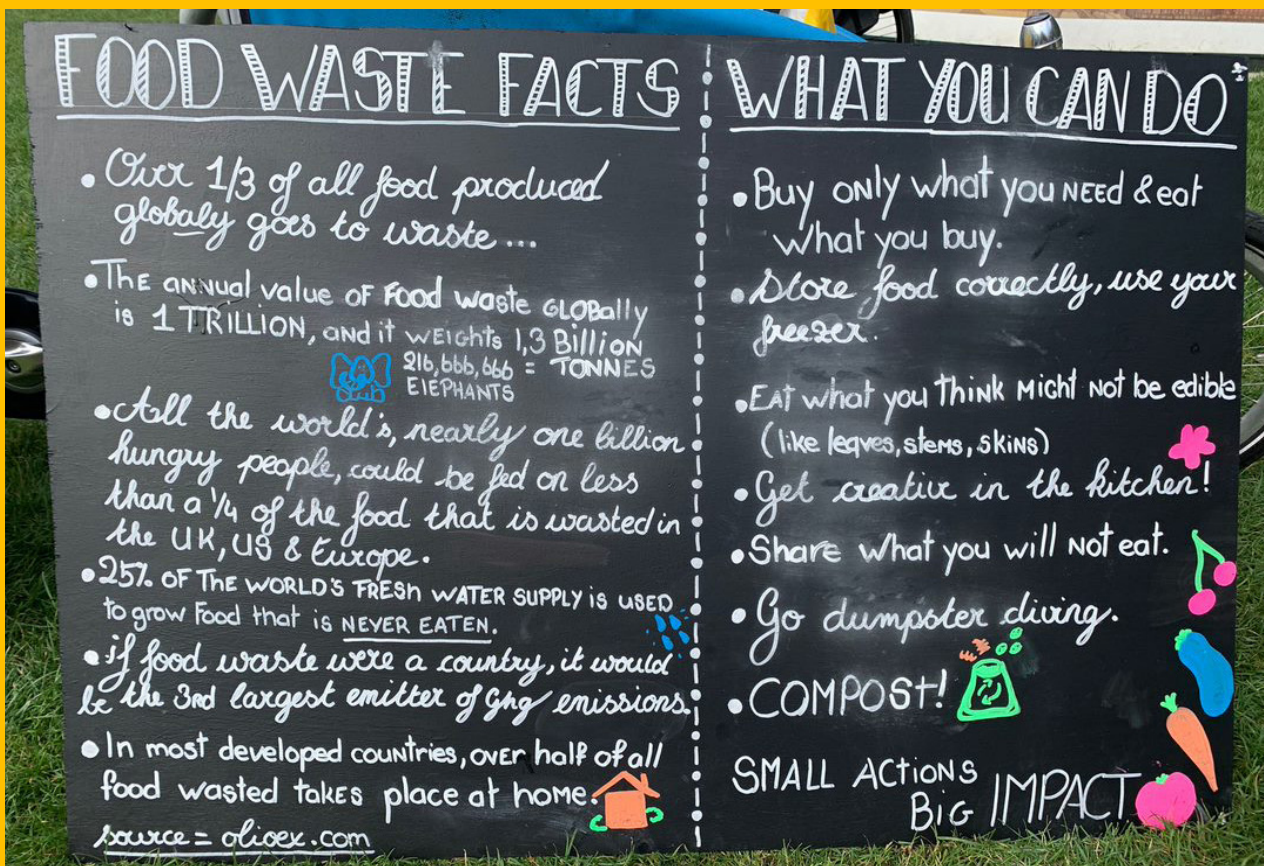 FOOD WASTE FACTS
• Over 1/3 of all food produced
globaly goes to waste...
• The annual value of food waste globally
is 1 TRILLION, and it weights 1,3 Billion
TONNES
216,666,666 =
ElEPHANTS
• All the world's, nearly one billion
hungry people, could be fed on less
than a 1/4 of the food that is wasted in
the UK, US & Europe.
• 25% OF THE WORLD'S FRESH WATER SUPPLY is USED
to grow Food that is NEVER EATEN.
• if food waste were a country, it would
be the 3rd largest emitter of Ghg emissions.
• In most developed countries, over half of all
food wasted takes place at home.
source = olioex.com
WHAT YOU CAN DO
• Buy only what you NEED & eat
what you buy.
• Store food correctly, use your
freezer.
• EAT what you think Might Not be edible
(like leaves, stems, skins)
• Get creative in the kitchen!
• Share what you will Not eat.
• Go dumpster diving.
• COMPOSt!
SMALL ACtiONS
BiG IMPACT